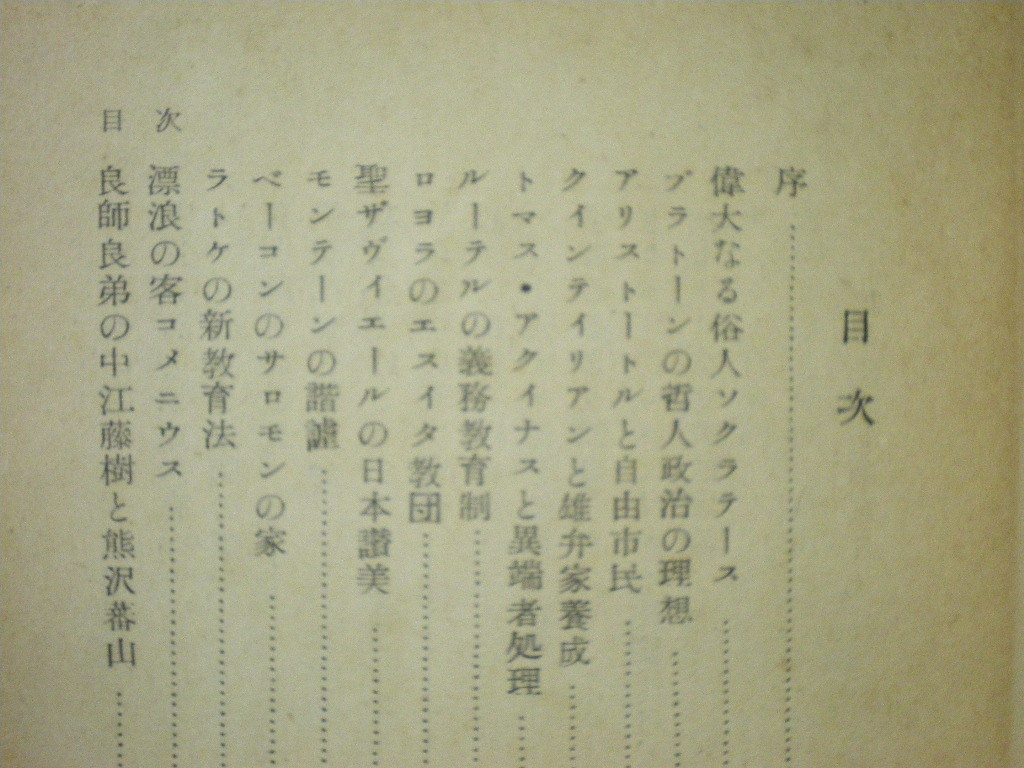 目次
序
偉大なる俗人ソクラテース
プラトーンの哲人政治の理想
アリストートルと自由市民
クインティリアンと雄弁家養成
トマス・アクイナスと異端者処理
ルーテルの義務教育制
ロヨラのエスイタ教団
聖ザヴィエールの日本讃美
モンテーンの諧謔
ベーコンのサロモンの家
ラトケの新教育法
漂浪の客コメニウス
良師良弟の中江藤樹と熊沢蕃山
目次